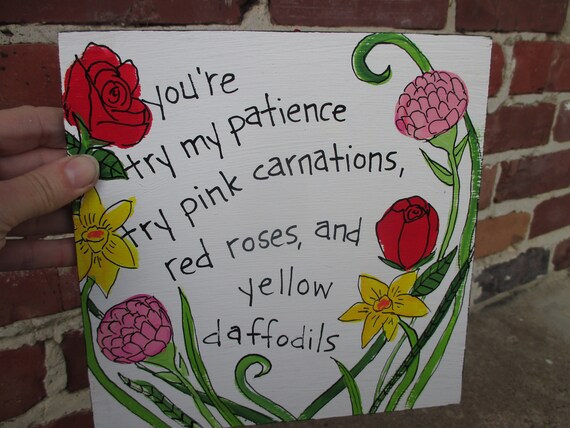 you're
try my patience
try pink carnations,
red roses, and
yellow
daffodils